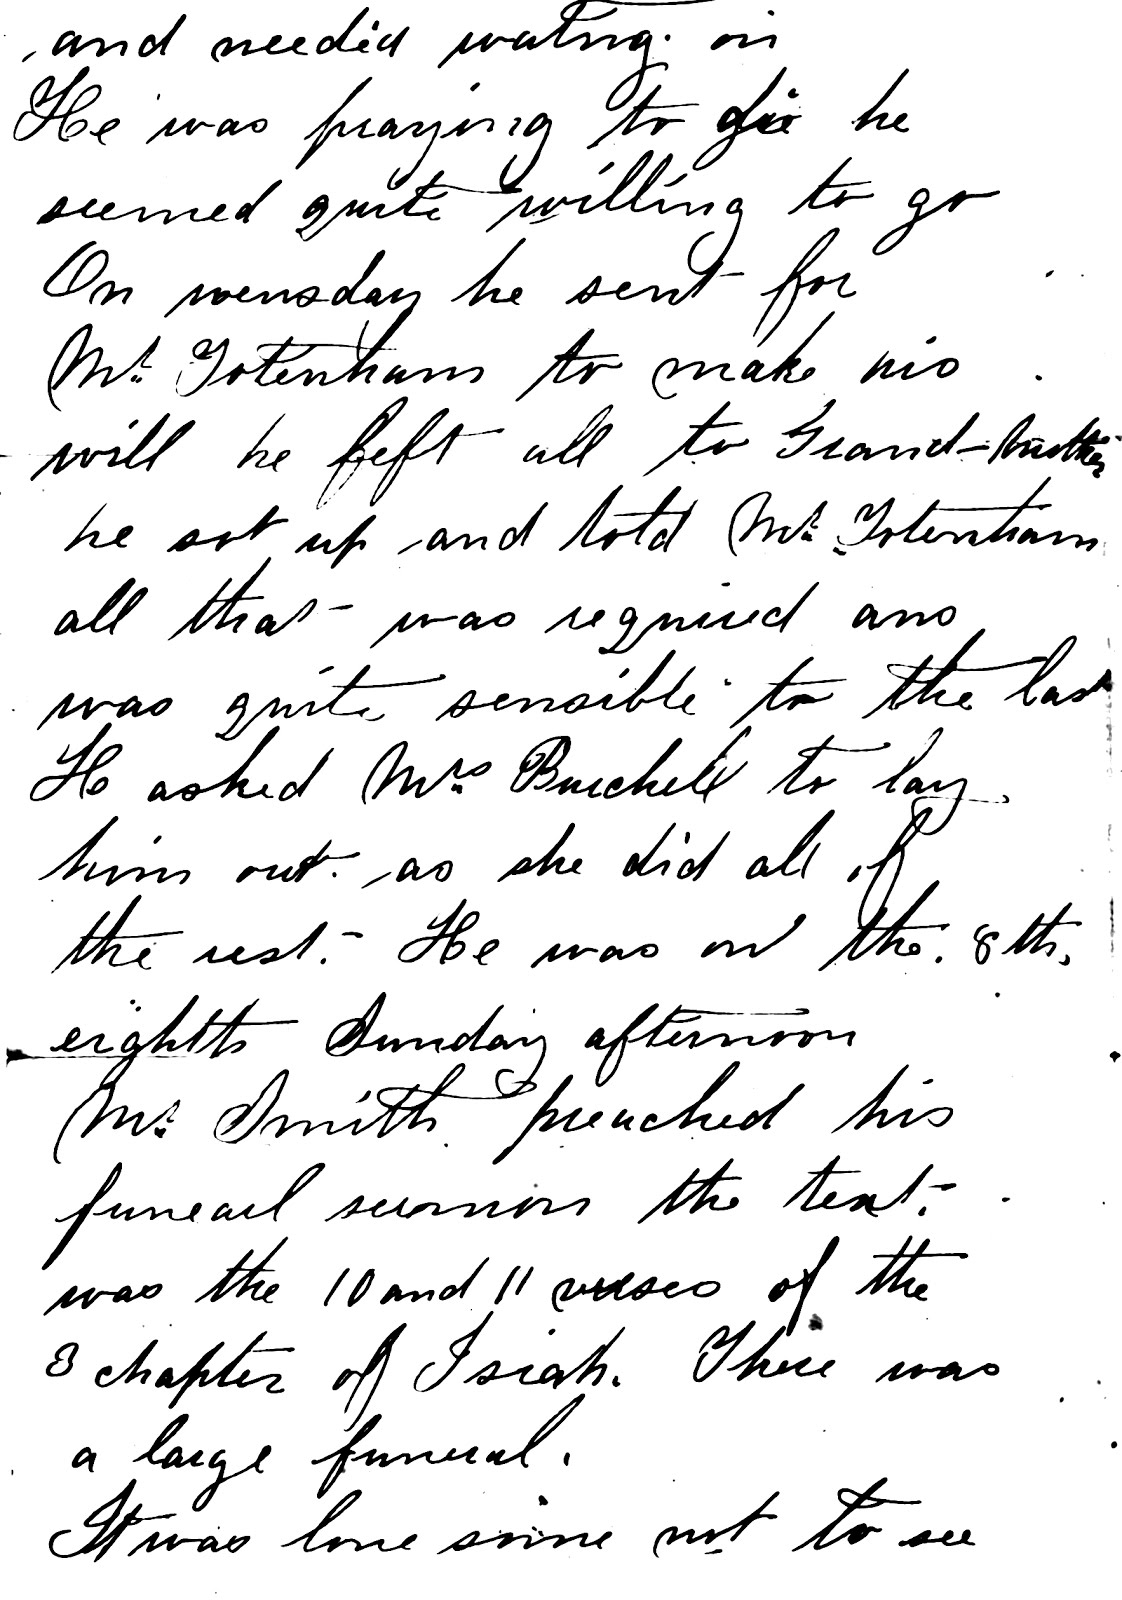 and needed wating on
He was praying to die he
seemed quite willing to go
On wensday he sent for
Mr. Totenham to make his
will he left all to Grand-Mother
he sot up and told Mr. Totenham
all that was required and
was quite sensible to the last
He asked Mrs. Burchell to lay
him out. as she did all of
the rest. He was on the. 8th,
eighth Sunday afternoon
Mr. Smith preached his
funearl sermon the text.
was the 10 and 11 verses of the
3 chapter of Isiah. There was
a large funeral.
It was lone some not to see